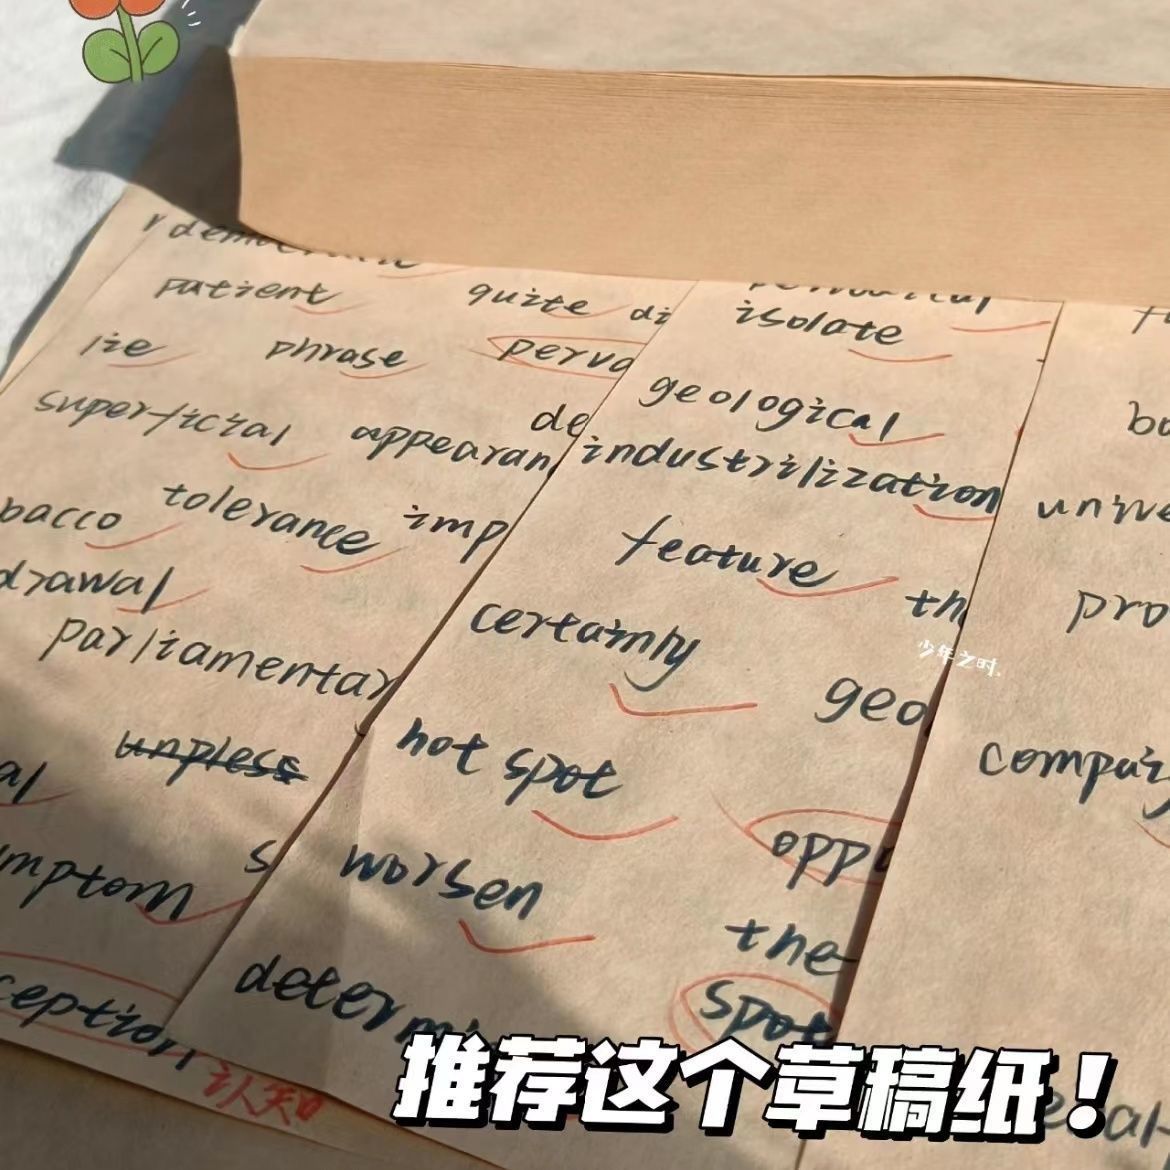 patient quite di
lie phrase perva
superficial appearan
de
bacco tolerance imp
drawal
parliamentar
al unpless
mptom s
ception
认知
isolate
geological
industrilization
feature th
certainly geo
hot spot
worsen opp
the
determ spot
univ
pro
少年之时
推荐这个草稿纸!